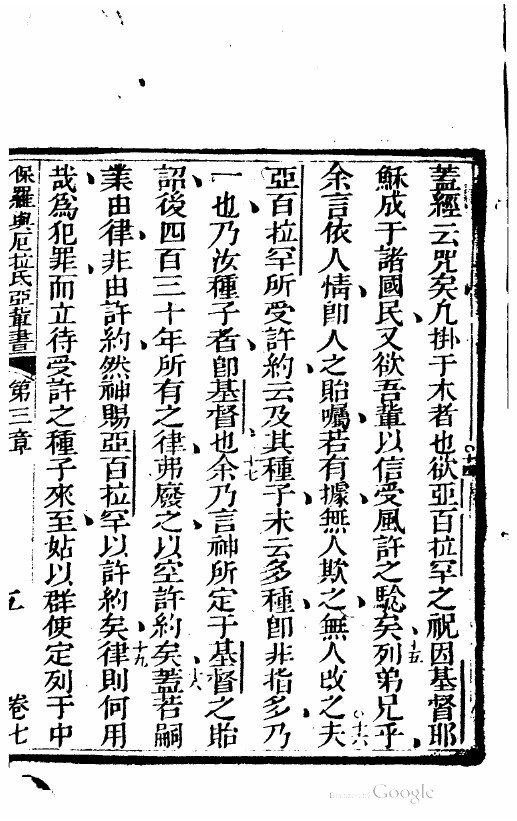 蓋經云咒矣凡掛于木者也欲亞百拉罕之祝因基督耶
穌成于諸國民又欲吾輩以信受風許之騐矣列弟兄乎
余言依人情卽人之貽囑若有據無人欺之無人改之夫
亞百拉罕所受許約云及其種子未云多種卽非指多乃
一也乃汝種子者卽基督也余乃言神所定于基督之貽
詔後四百三十年所有之律弗廢之以空許約矣蓋若嗣
業由律非由許約然神賜亞百拉罕以許約矣律則何用
哉為犯罪而立待受許之種子來至姑以群使定列于中
保羅與厄拉氏亞輩書 第三章 五 卷七
十四
十五
十六
十七
十八
十九
Digitized by Google